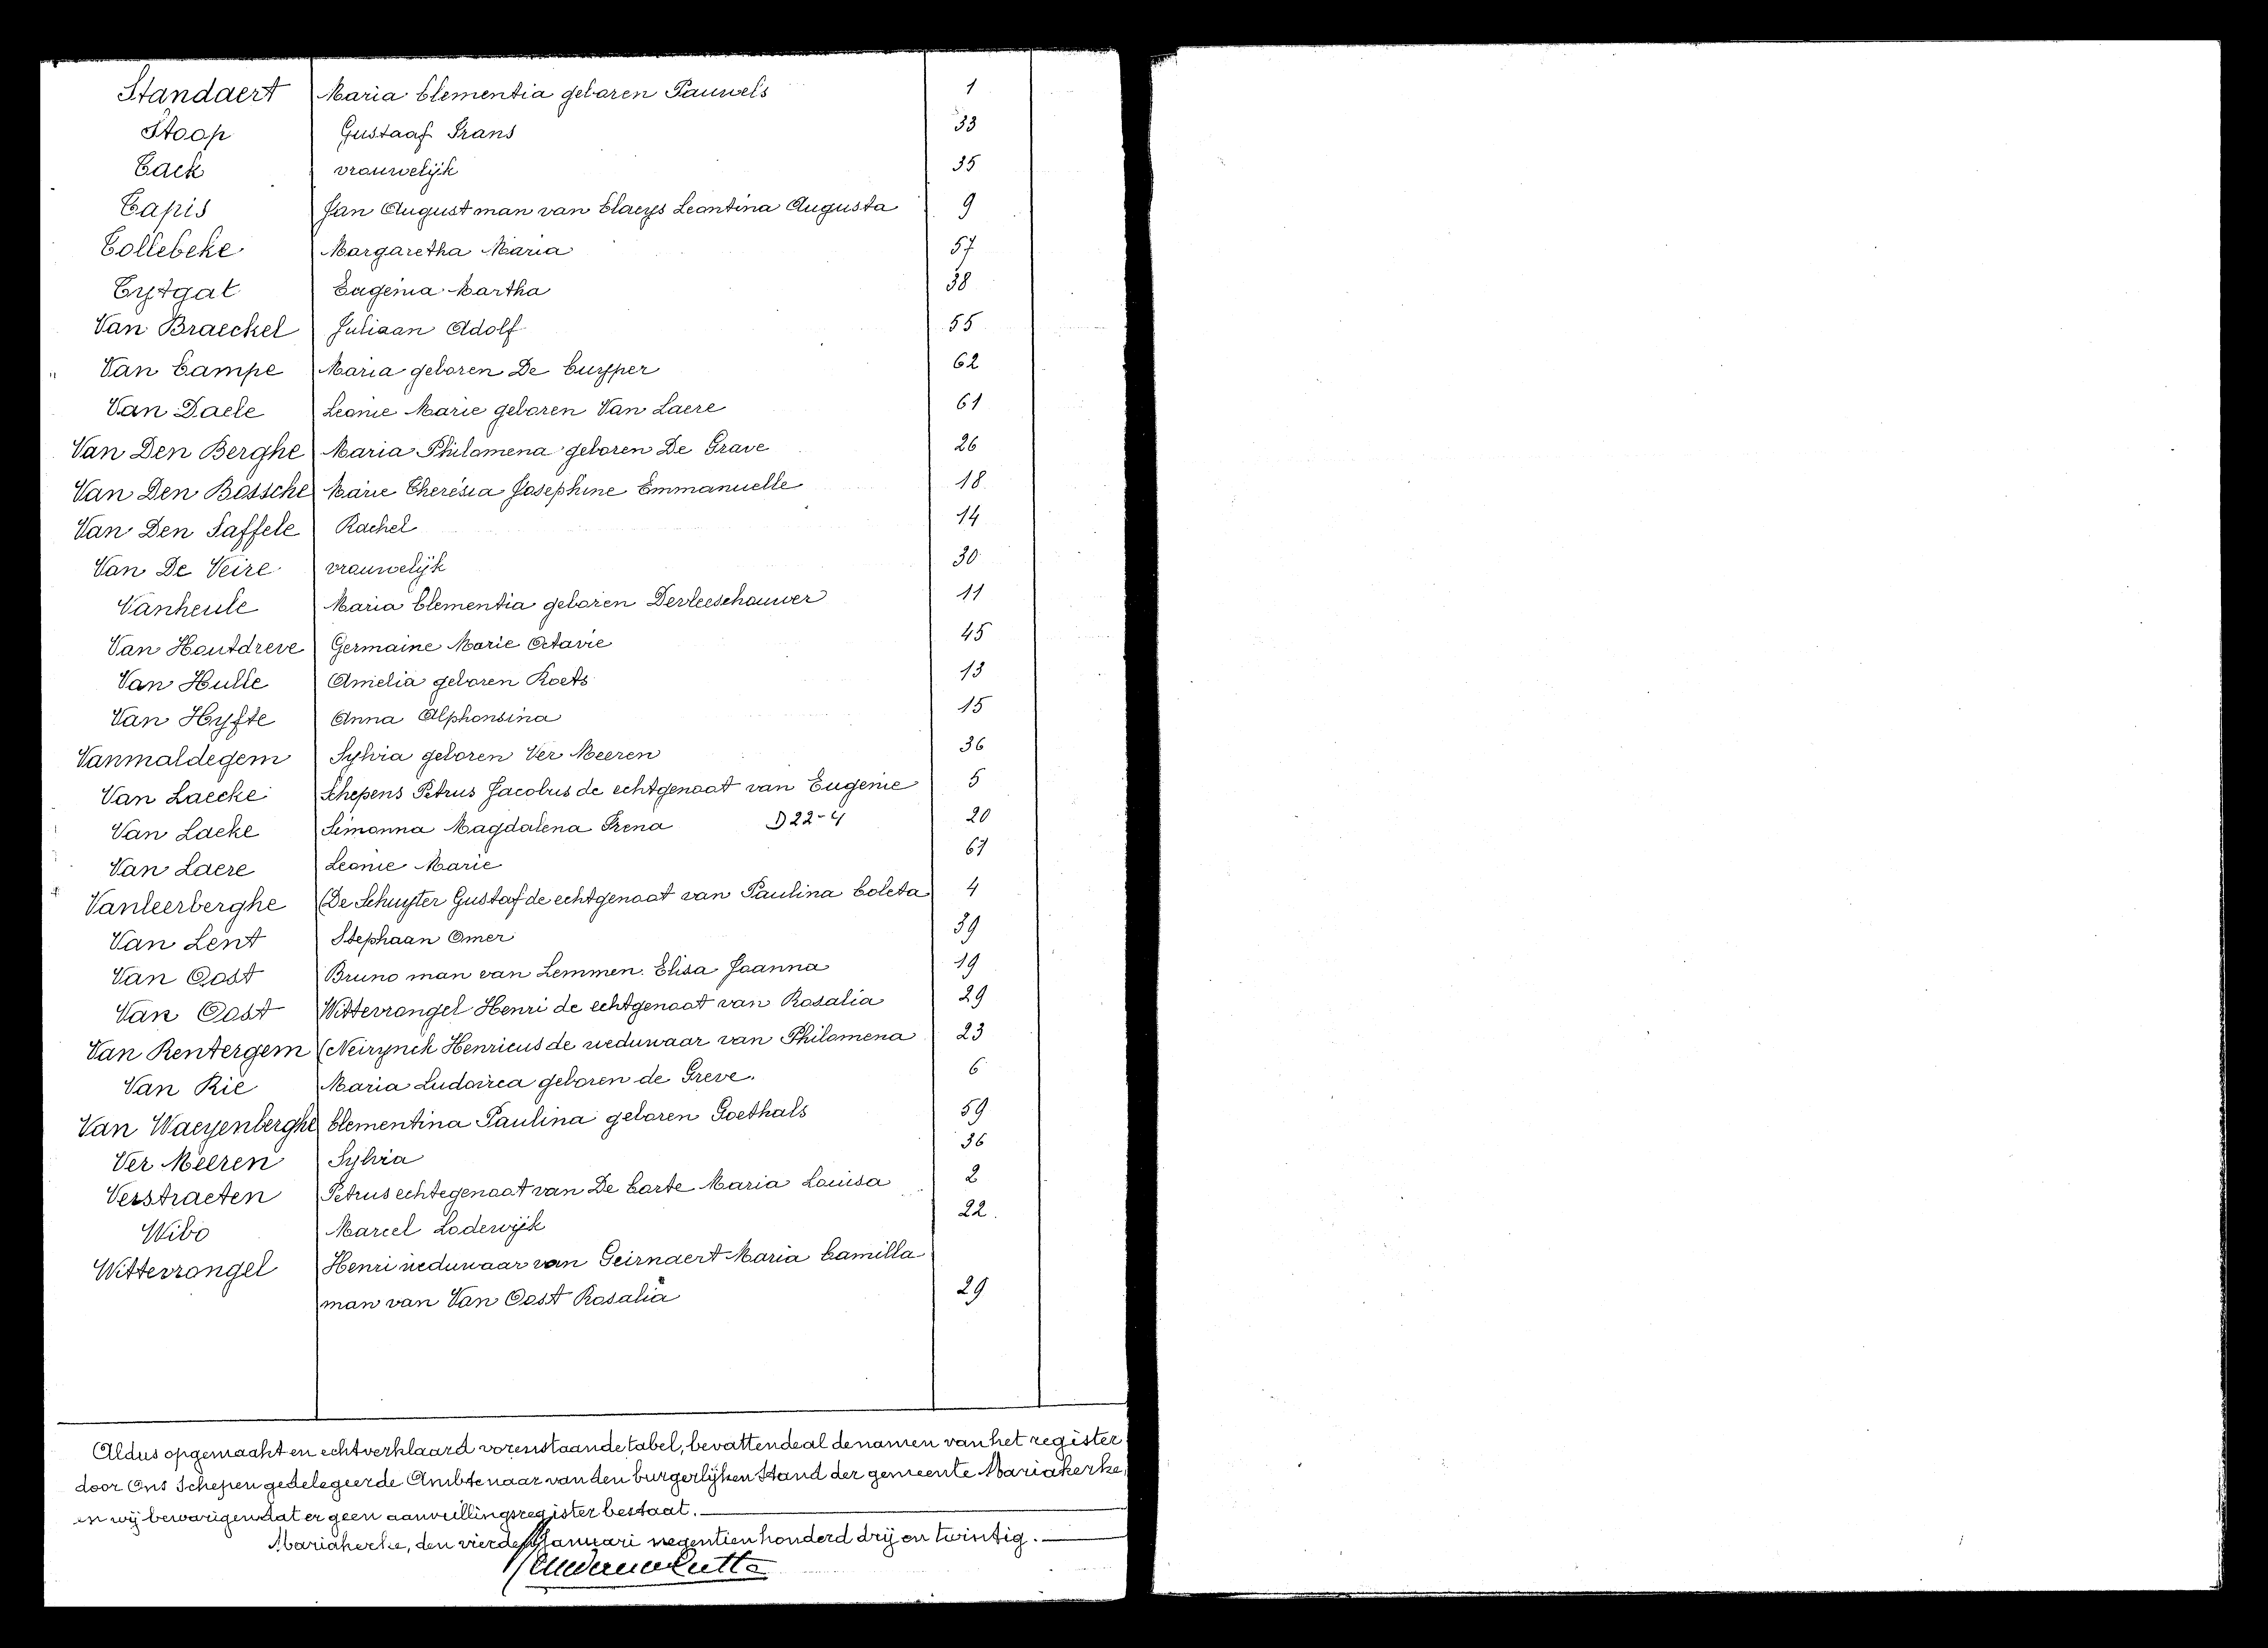 Standaert Maria Clementia geboren Pauwels 1
Stoop Gustaaf Frans 33
Tack vrouwelijk 35
Tapis Jan August man van Claeys Leontina Augusta 9
Tollebeke Margaretha Maria 57
Tytgat Eugenia Martha 38
Van Braeckel Juliaan Adolf 55
Van Campe Maria geboren De Cuyper 62
Van Daele Leonie Marie geboren Van Laere 61
Van Den Berghe Maria Philomena geboren De Grave 26
Van Den Bossche Marie Therésia Josephine Emmanuelle 18
Van Den Saffele Rachel 14
Van De Veire vrouwelijk 30
Vanheule Maria Clementia geboren Devleeschouwer 11
Van Houtdreve Germaine Marie Octavie 45
Van Hulle Amelia geboren Roets 13
Van Hyfte Anna Alphonsina 15
Vanmaldegem Sylvia geboren Ver Meeren 36
Van Laecke Schepens Petrus Jacobus de echtgenoot van Eugenie 5
Van Laeke Simonna Magdalena Irena D 22-4 20
Van Laere Leonie Marie 61
Vanleerberghe (De Schuyter Gustaf de echtgenoot van Paulina Coleta 4
Van Lent Stephaan Omer 39
Van Oost Bruno man van Lemmen. Elisa Joanna 19
Van Oost Wittevrongel Henri de echtgenoot van Rosalia 29
Van Rentergem (Neirynck Henricus de weduwaar van Philomena 23
Van Rie Maria Ludovica geboren de Greve. 6
Van Waeyenberghe Clementina Paulina geboren Goethals 59
Ver Meeren Sylvia 36
Verstraeten Petrus echtegenoot van De Corte Maria Louisa 2
Wibo Marcel Lodewijk 22.
Wittevrongel Henri weduwaar van Geirnaert Maria Camilla
man van Van Oost Rosalia 29
Aldus opgemaakt en echtverklaard vorenstaande tabel, bevattende al de namen van het register
door Ons Schepen gedelegeerde Ambtenaar van den burgerlijken Stand der gemeente Mariakerke,
en wij bevestigen dat er geen aanvullingsregister bestaat.
Mariakerke, den vierden Januari negentien honderd drij en twintig.